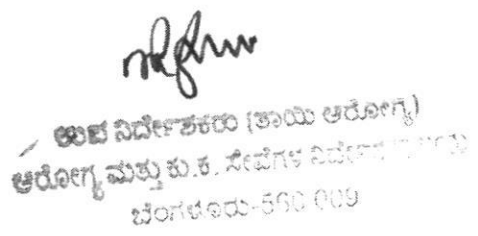 ಉಪ ನಿರ್ದೇಶಕರು (ತಾಯಿ ಆರೋಗ್ಯ)
ಆರೋಗ್ಯ ಮತ್ತು ಕು.ಕ. ಸೇವೆಗಳ
ಬೆಂಗಳೂರು-560 009